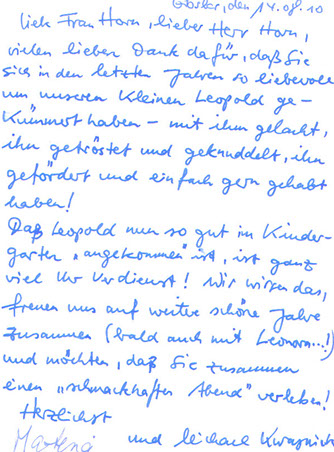 den 14.08.10
Liebe Frau Horn, lieber Herr Horn,
vielen lieben Dank dafür, daß Sie
sich in den letzten Jahren so liebevoll
um unseren kleinen Leopold ge-
kümmert haben – mit ihm gelacht,
ihn getröstet und geknuddelt, ihn
gefördert und einfach gern gehabt
haben!
Daß Leopold nun so gut im Kinder-
garten „angekommen" ist, ist ganz
viel Ihr Verdienst! Wir wissen das,
freuen uns auf weitere schöne Jahre
zusammen (bald auch mit Leonora...!)
und möchten, daß Sie zusammen
einen „schmackhaften Abend" verleben!
Herzlichst
und Michael